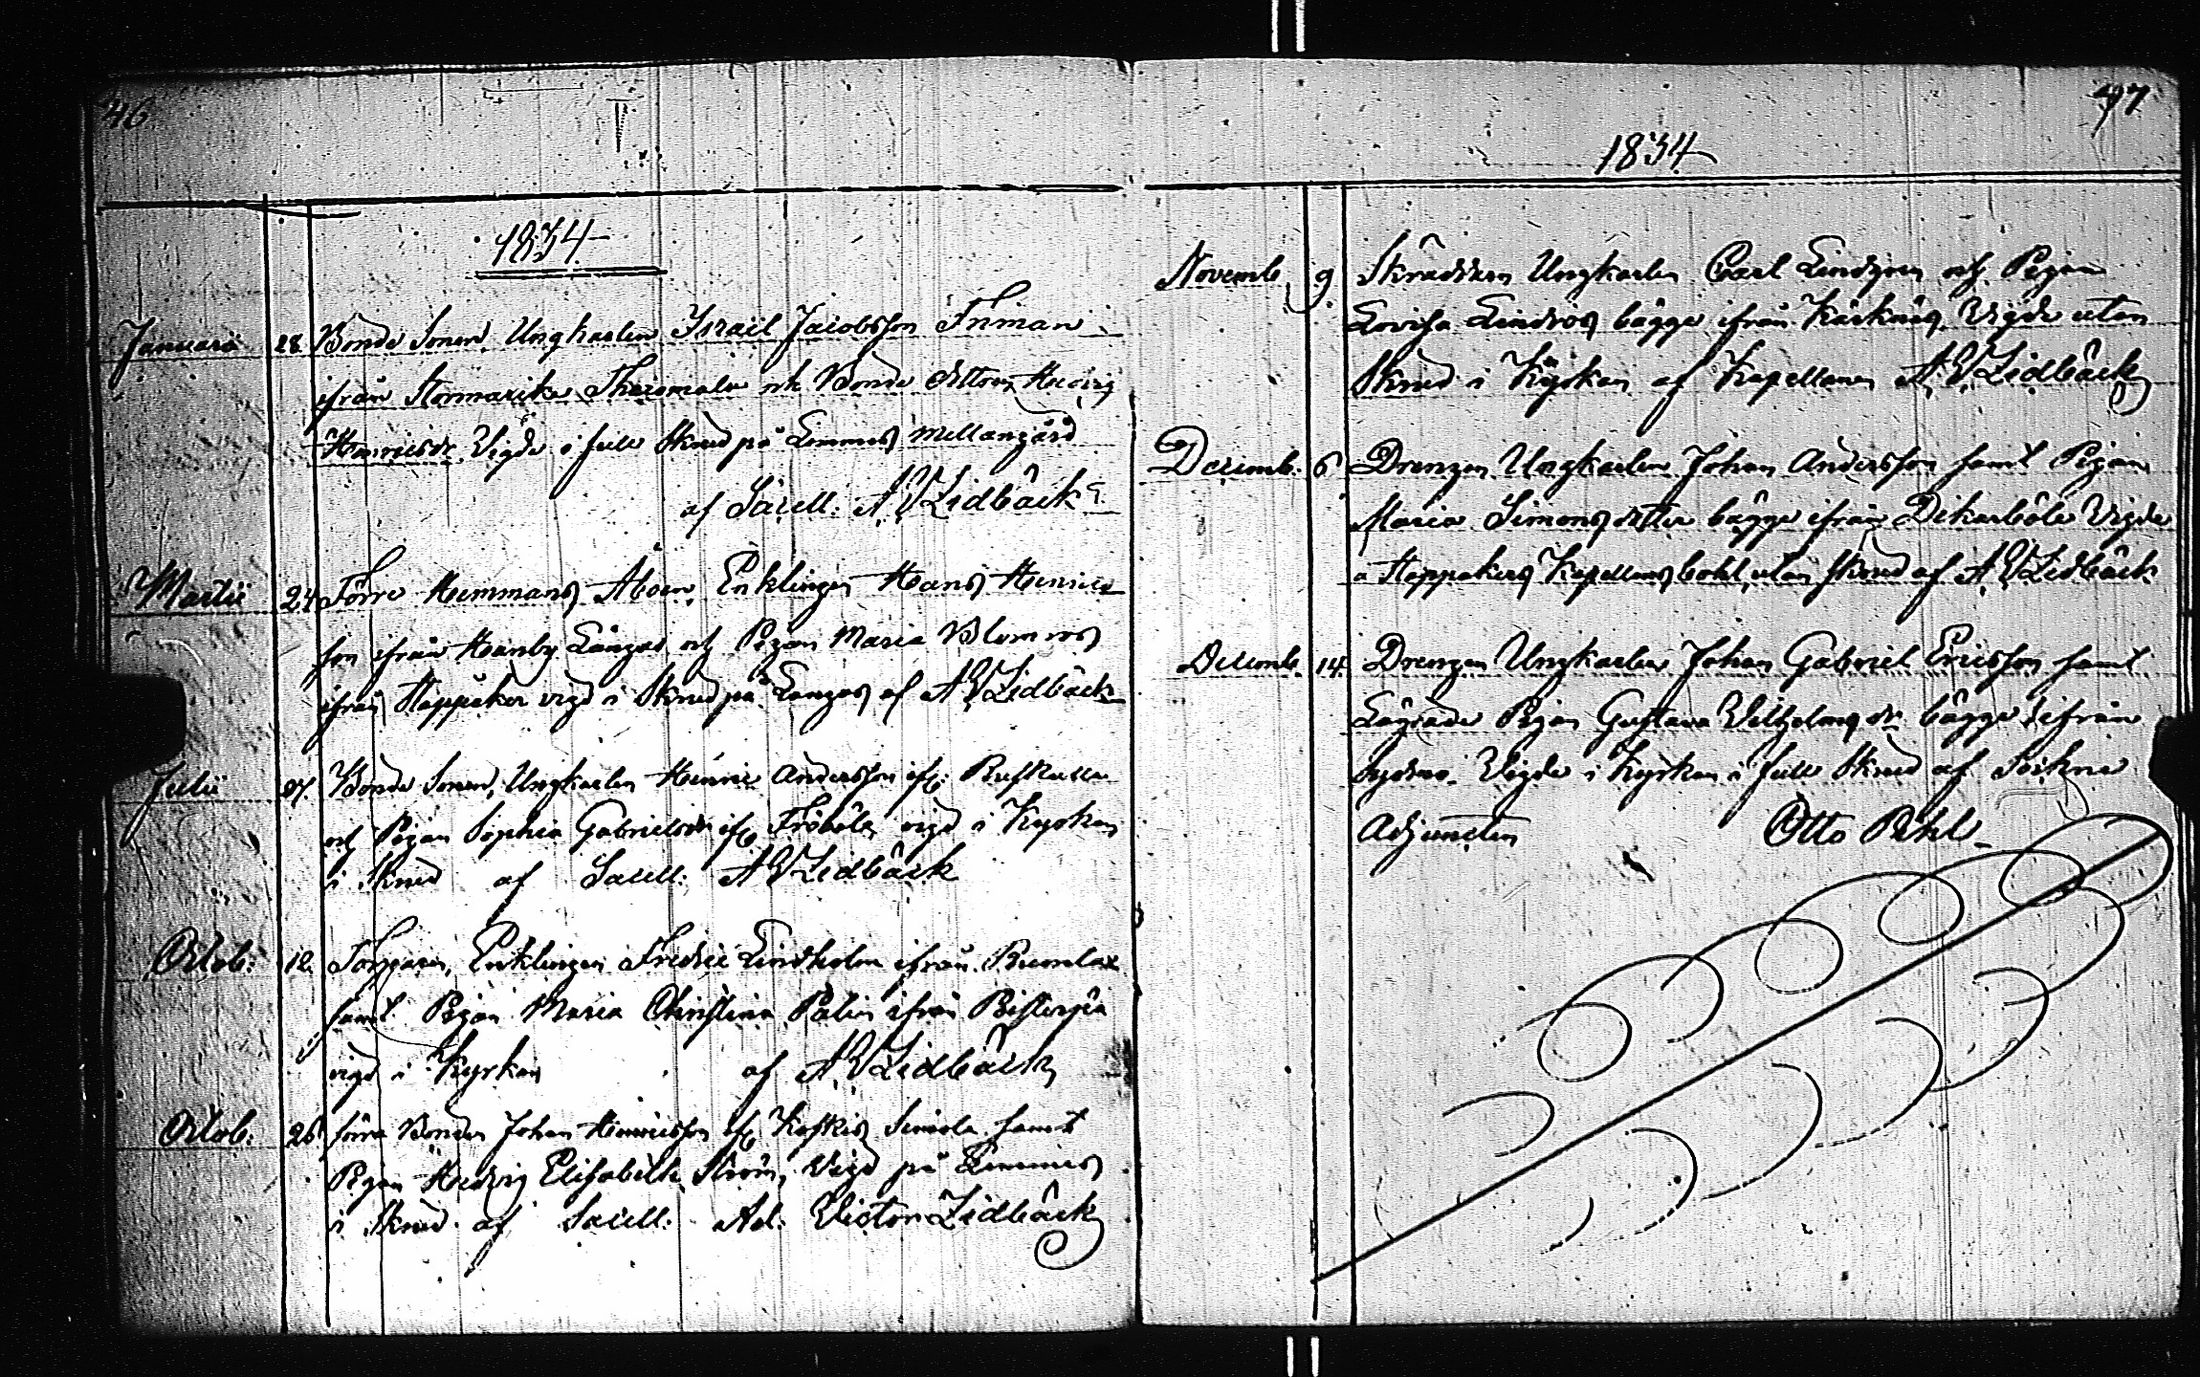 46
1834
Januarii 28. Bonde Sonen, Ungkarlen Israil Jacobsson Friman
ifrån Hormarike och Bonde dottren Hedvig
Henricsdr. Vigde i full Skrud på Limnes Mellangård
af Sacell: A V Zidbäck
Martii 24 Förre Hemmans Åboen, Enklingen Hans Henrics
son ifrån Hanby Långas och Pigan Maria Blomros
ifrån Stappåker vigd i Skrud på Långas af A V Zidbäck
Julii Bonde Sonen, Ungkarlen Henric Andersson ifr:
och Pigan Sophia Gabrielsdr ifr. Fröböle vigd i Kyrkan
i Skrud af Sacell: A V Zidbäck
Octob: 12. Torparen, Enklingen Fredric Lindholm ifrån Rumlax
samt Pigan Maria Christina Palin ifrån
vigd i Kyrkan af A V Zidbäck
Octob: 26 förra Bonden Johan Henricsson ifr Koskis Simola samt
Pigan Hedvig Elisabeth Ström, Vigd på Limnes
i Skrud af Sacell: Ad: Victor Zidbäck
47
1834
Novemb. 9 Skräddaren Ungkarlen Carl Lindgren och Pigan
Lovisa Lindros bägge ifrån Kärknäs, Vigde utan
Skrud i Kyrkan af Kapellanen A V Zidbäck
Decemb. 6 Drengen Ungkarlen Johan Andersson samt Pigan
Maria Simonsdotter bägge ifrån Dikarböle Vigde
å Stappåkers Kapellans bohl, utan skrud af A V Zidbäck
Decemb. 14. Drengen Ungkarlen Johan Gabriel Ericsson samt
Lägrade Pigan Gustava Wilhelmsdr. bägge ifrån
Sydmo. Vigde i Kyrkan i full Skrud af Sockne
Adjuncten Otto Pehl